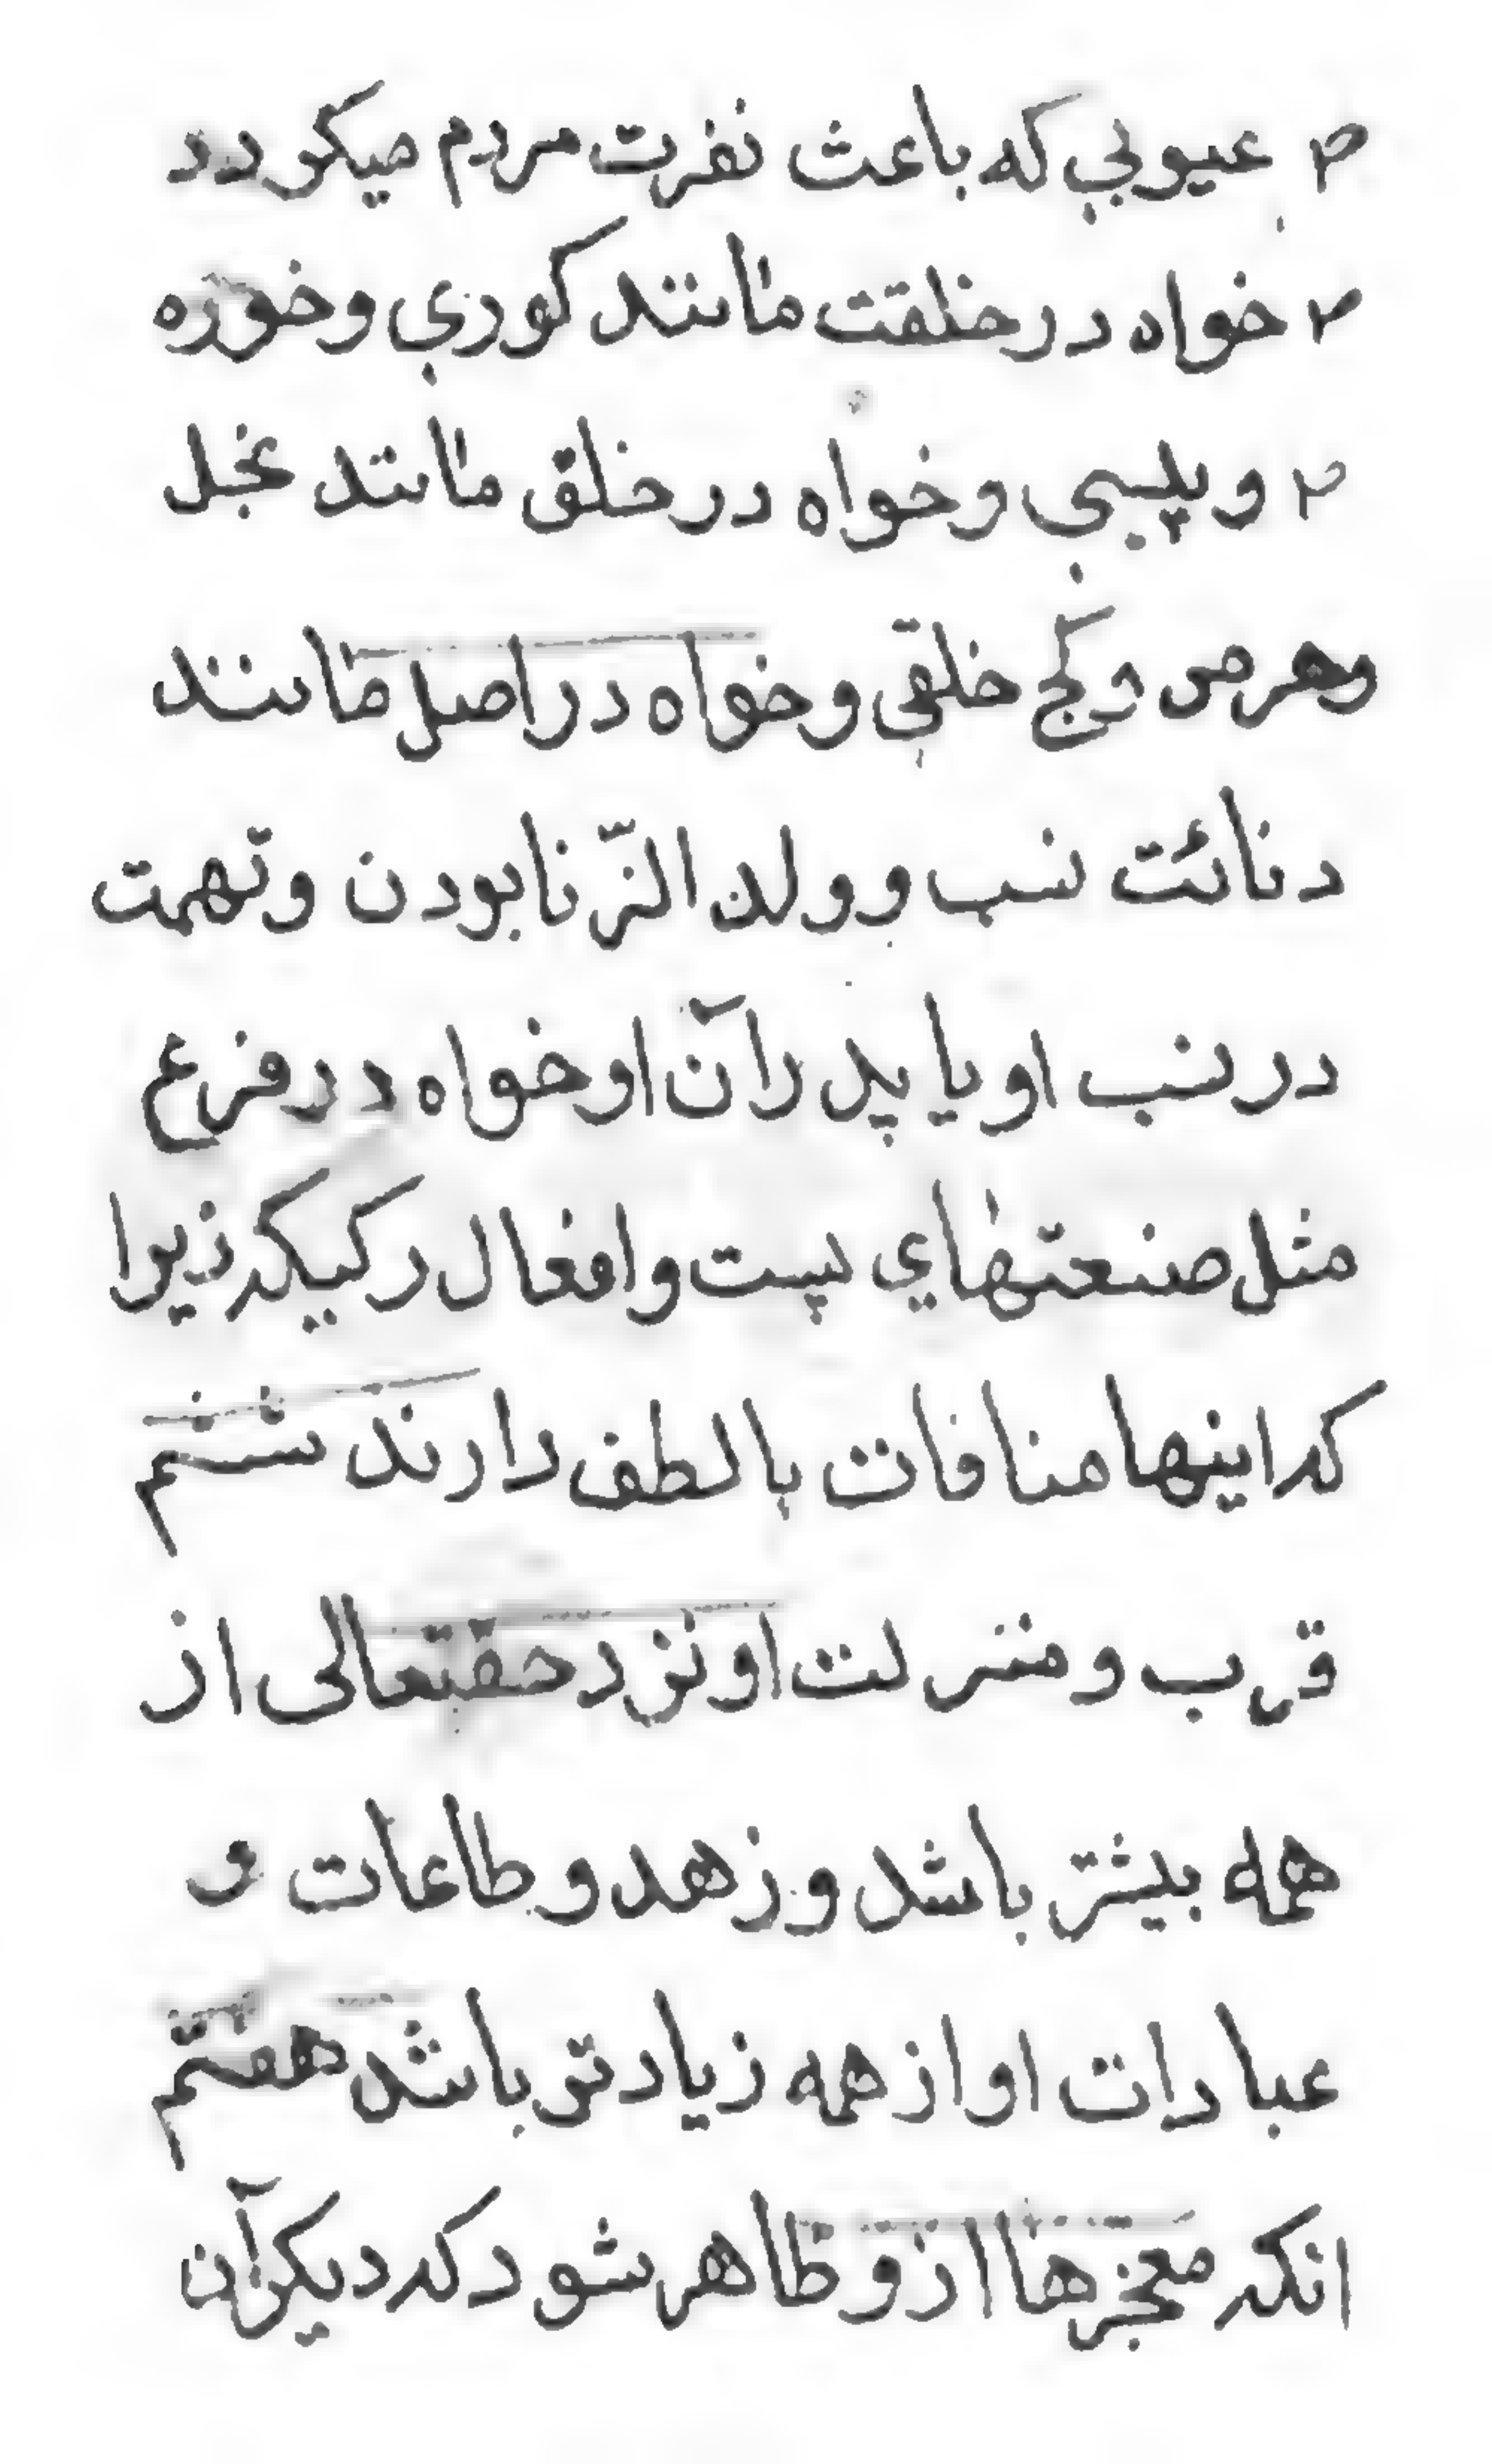 عیوبی که باعث نفرت مردم میکردد
خواه در خلقت مانند کوری و خوره
و پیسی و خواه در خلق مانند بخل
و هرص و کج خلقی و خواه در اصل مانند
دنائت نسب و ولد الزّنا بودن و تهمت
در نسب او یا پدرآن او خواه در فرع
مثل صنعتهای پست و افعال رکیکه زیرا
که اینها منافات با لطف دارند ششم
قرب و منزلت او نزد حقتعالی از
همه بیشتر باشد و زهد و طاعات و
عبادات او از همه زیادتر باشد هفتم
انکه معجزها ازو ظاهر شود که دیکرآن